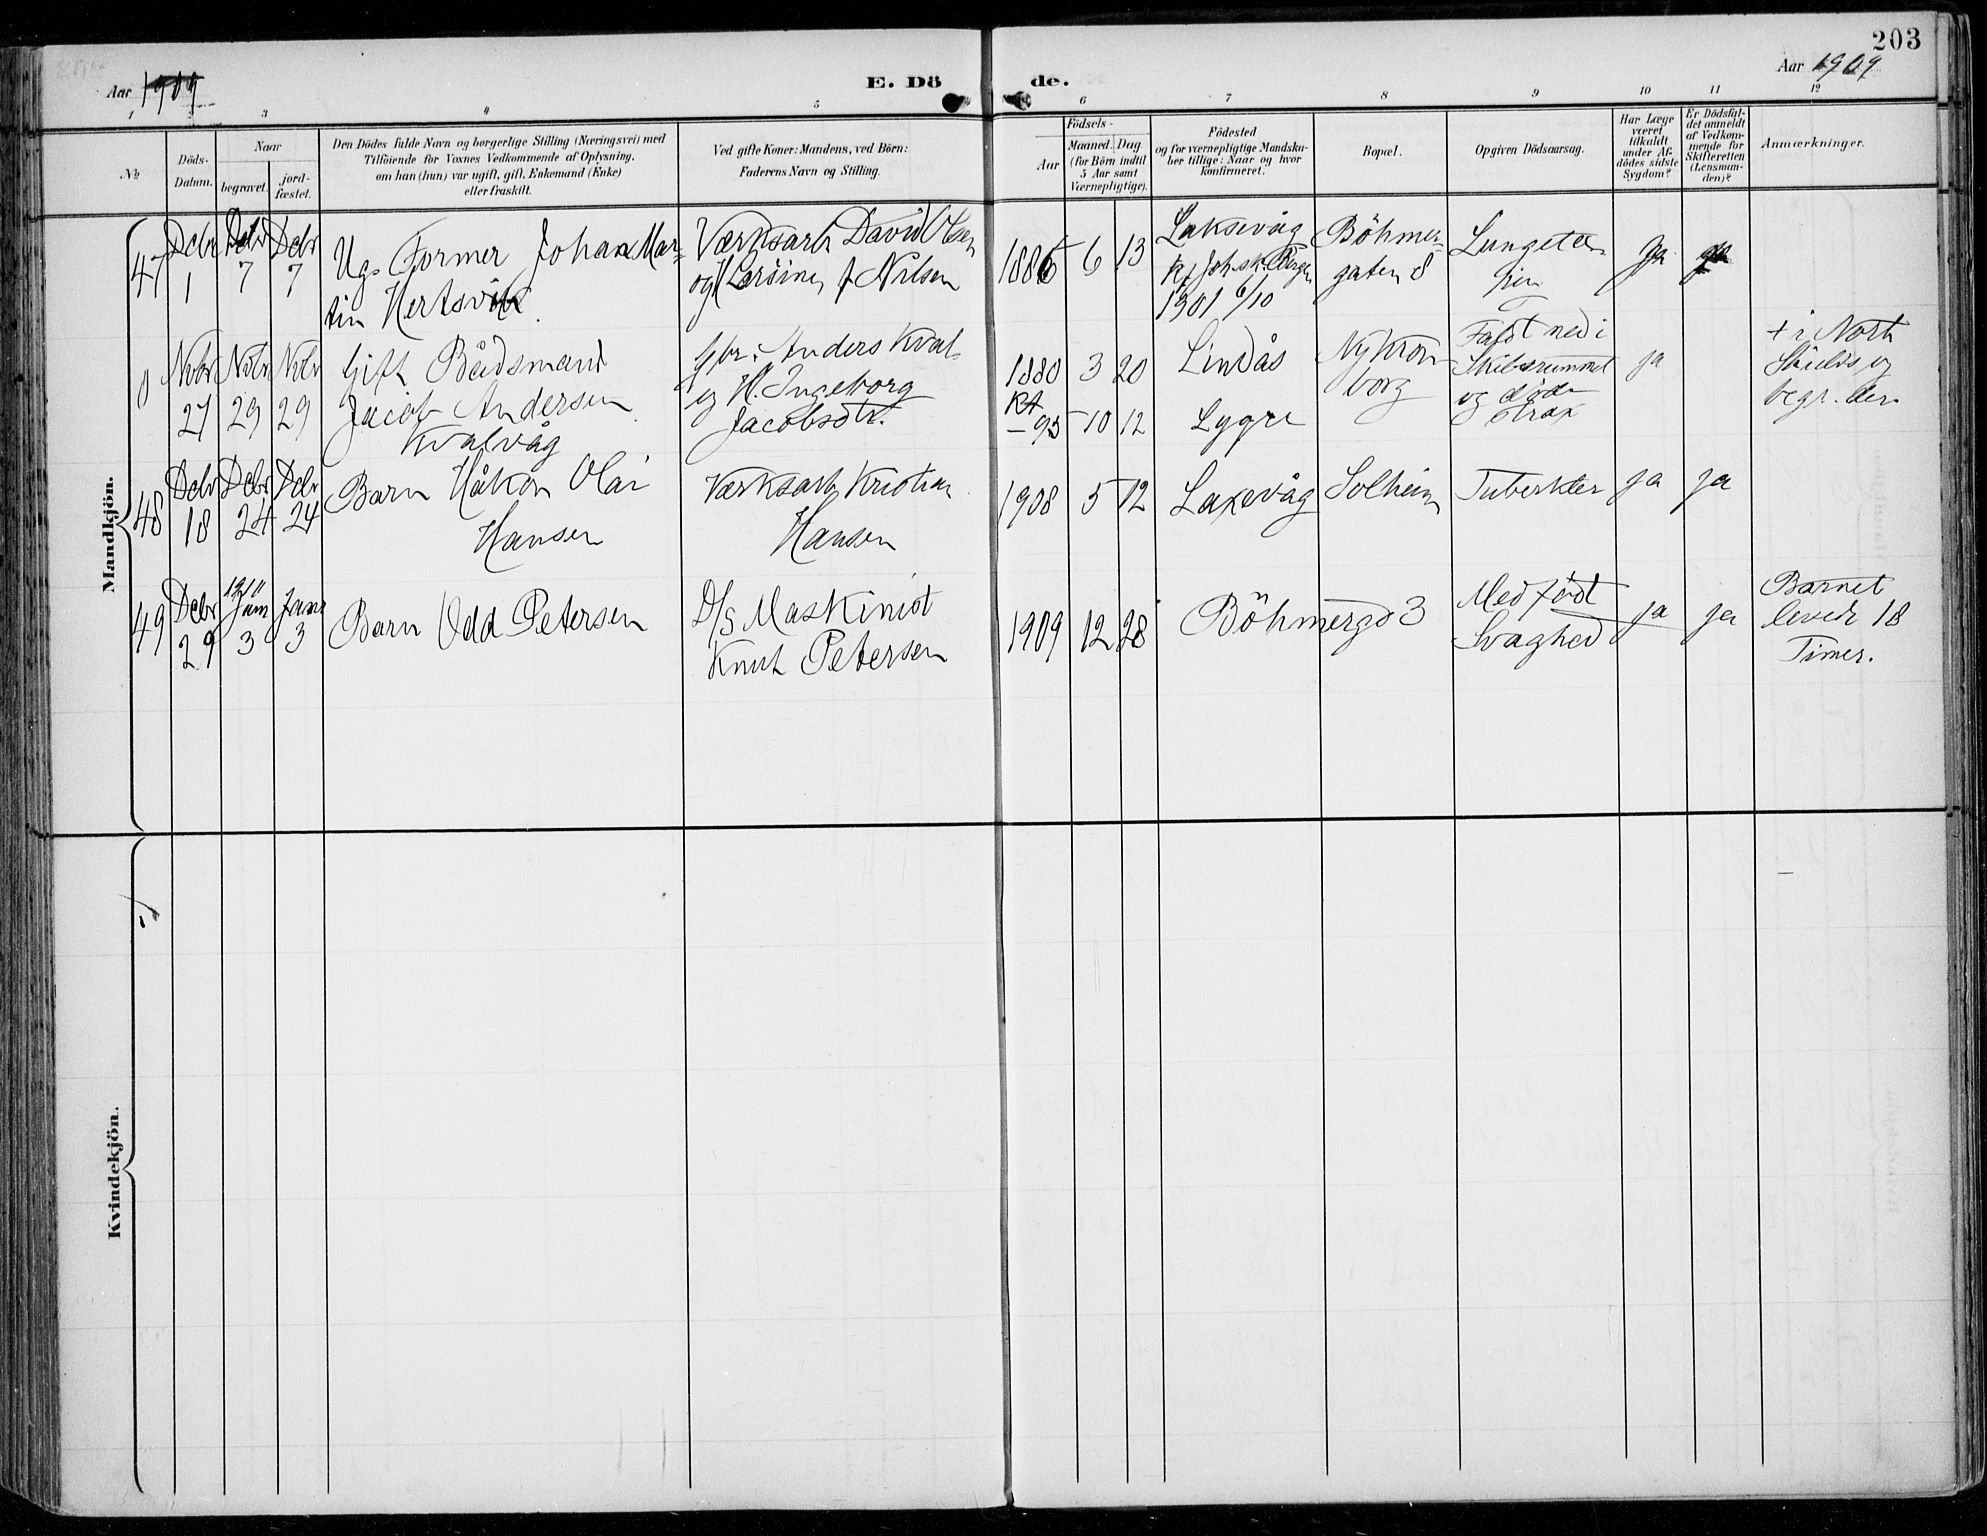 203
Aar 1909
E. Dö de.
Aar 1909
1 2 3 4 5 6 7 8 9 10 11 12
No
Döds-
Datum.
Naar
begravet.
jord-
fæstet.
Den Dödes fulde Navn og borgerlige Stilling (Næringsvei) med
Tilföiende for Voxnes Vedkommende af Oplysning,
om han (hun) var ugift, gift, Enkemand (Enke)
eller fraskilt.
Ved gifte Koner: Mandens, ved Börn:
Faderens Navn og Stilling.
Födsels-
Aar
Maaned. Dag
(for Börn indtil
5 Aar samt
Værnepligtige).
Födested
og for værnepligtige Mandska-
ber tillige: Naar og hvor
konfirmeret.
Bopæl.
Opgiven Dödsaarsag.
Har Læge
været
tilkaldt
under Af-
dödes sidste
Sygdom?
Er Dödsfal-
det anmeldt
af Vedkom-
mende for
Skifteretten
(Lensman-
den)?
Anmærkninger.
Mandkjön.
47
Debr
1
Debr
7
Debr
7
Ug. Former Johan Mar-
tin Hertsvik
Værksarb David Olsen
og Nilsen
1886 6 13
Laksevåg
Kf Joh. sk. Bergen
1901 6/10
Böhmer-
gaten 8
Ja
ja
0
Nvbr
27
Nvbr
29
Nvbr
29
Gift Bådsmand
Jacob Andersen
Kvalvåg
Gbr. Anders Kval-
og H. Ingeborg
Jacobsdtr.
1880 3 20
Kf
-95 10 12
Lindås
Lygre
Ny Kron
borg
Faldt ned i
Skibsrummet
og döde
strax
ja
+ i North
Shields og
begr. der
48
Debr
18
Debr
24
Debr
24
Barn Håkon Olai
Hansen
Værksarb Kristian
Hansen
1908 5 12
Laxevåg
Solheim
Tuberkler
ja
ja
49
Debr
29
1910
Janr
3
Janr
3
Barn Odd Petersen
D/S Maskinist
Knut Petersen
1909 12 28
Böhmergd 3
Medfödt
Svaghed
ja
ja
Barnet
levede 18
Timer.
Kvindekjön.